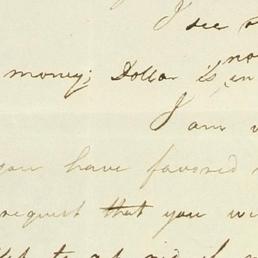 I see
no
money; Dollar is in
I am
you have favored
request that you